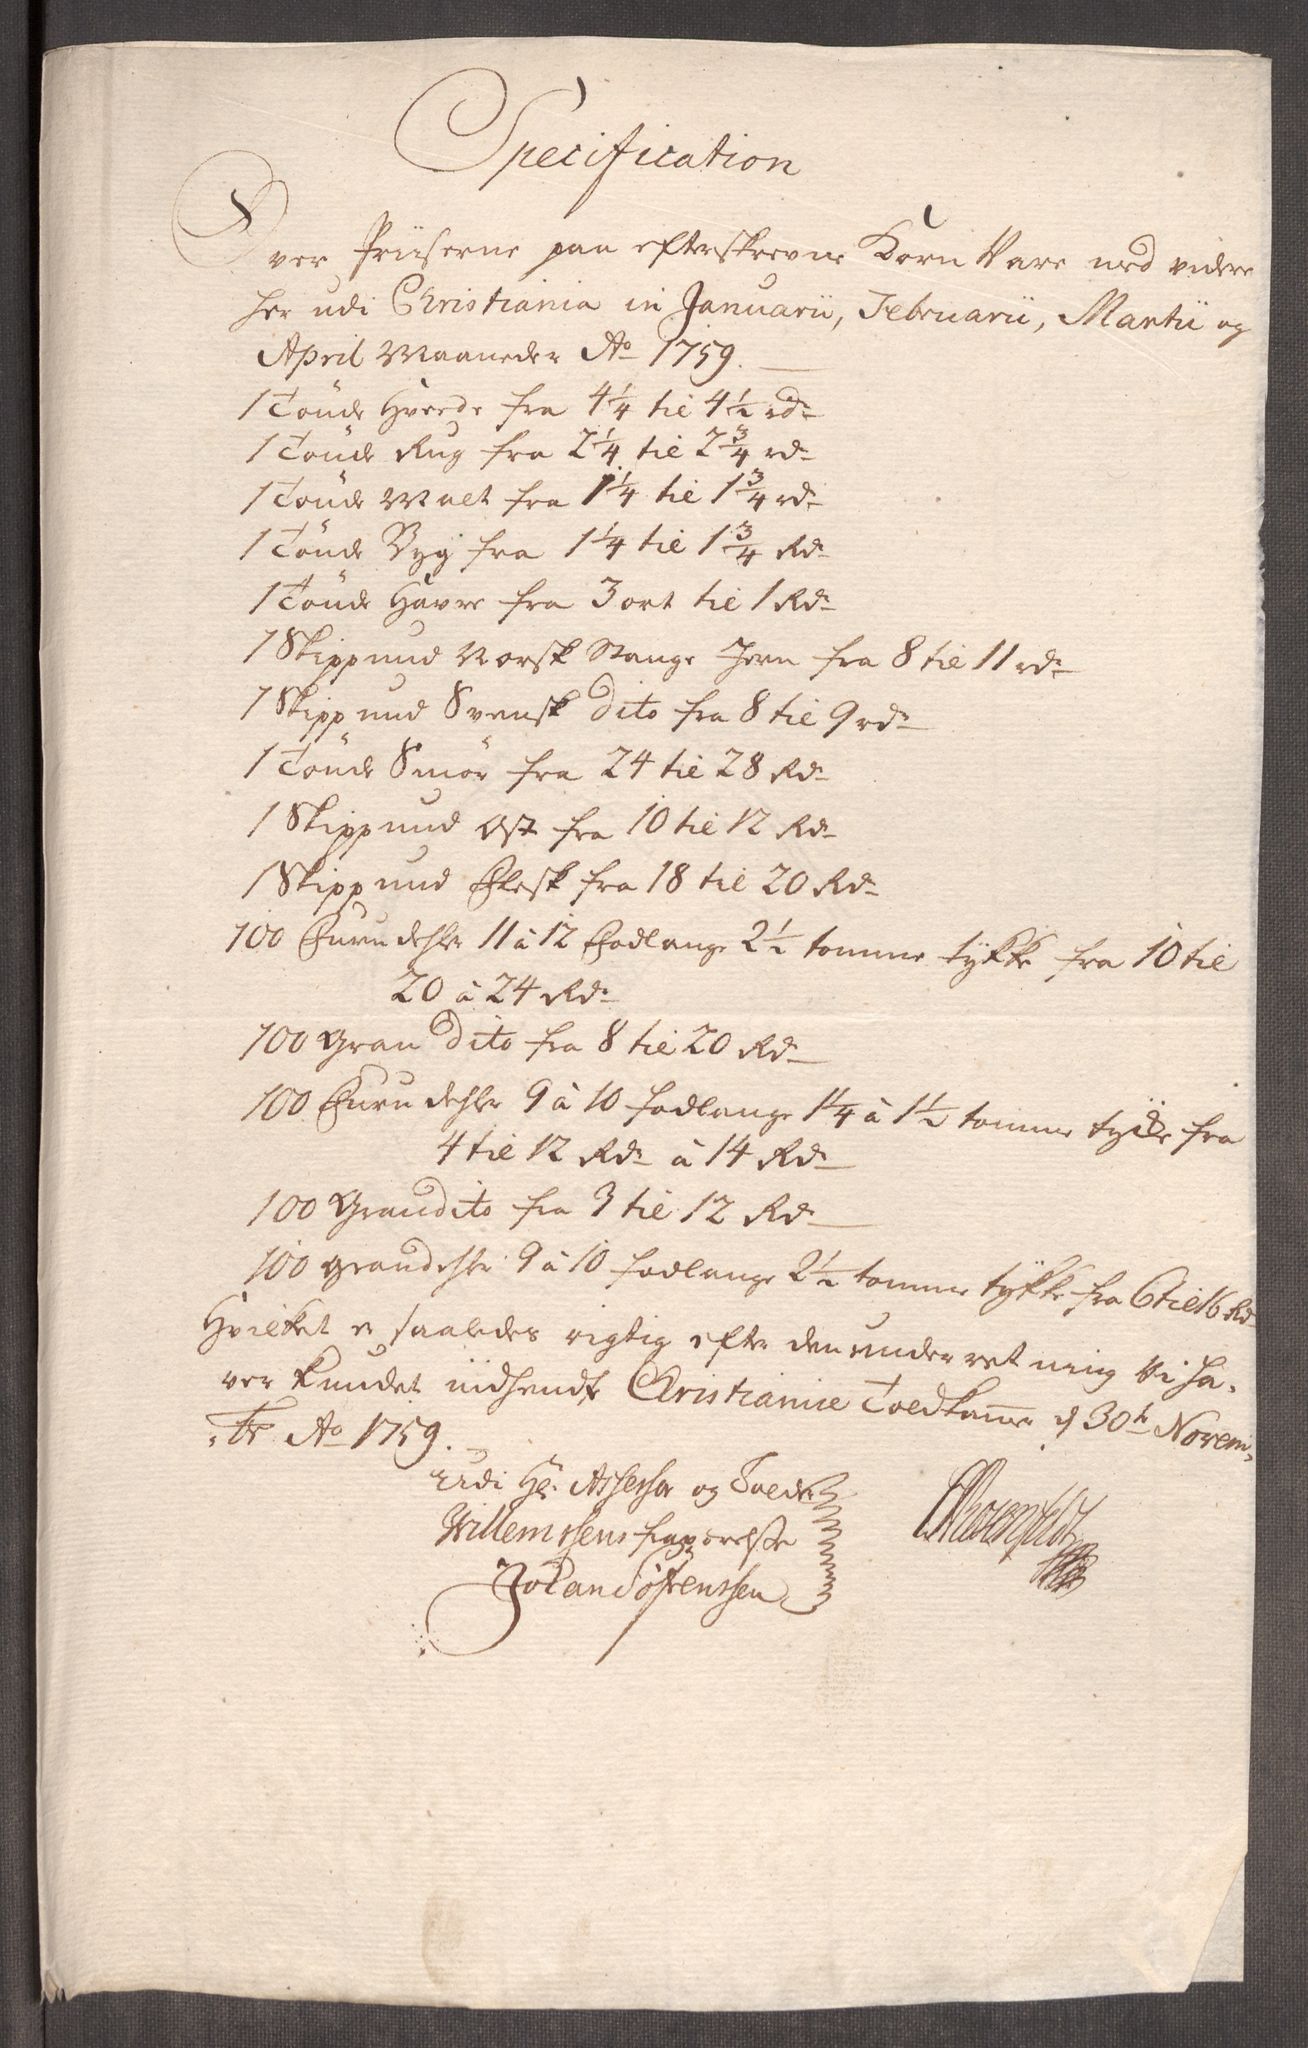 Specification
Over Priiserne paa efterskrevne Korn Vare med videre
her udi Christiania in Januarii, Februarii, Martii og
April Maaneder Ao 1759.
1 Tönde Hvede fra 4 1/4 til 4 1/2 rdr
1 Tönde Rug fra 2 1/4 til 2 3/4 rdr
1 Tönde Malt fra 1 1/4 til 1 3/4 rdr
1 Tönde Byg fra 1 1/4 til 1 3/4 Rdr
1 Tönde Havre fra 3 ort til 1 Rdr
1 Skippund Norsk Stange Jern fra 8 til 11 rdr
1 Skippund Svensk dito fra 8 til 9 rdr
1 Tönde Smör fra 24 til 28 Rdr
1 Skippund Ost fra 10 til 12 Rdr
1 Skippund Flesk fra 18 til 20 Rdr
100 Furu dehler 11 à 12 Fodlange 2 1/2 tomme tykke fra 10 til
20 à 24 Rdr
100 Gran dito fra 8 til 20 Rdr
100 Furu dehler 9 à 10 fodlange 1 1/4 à 1 1/2 tomme tycke fra
4 til 12 Rdr à 14 Rdr
100 Gran dito fra 3 til 12 Rdr
100 Gran dehler 9 à 10 fodlange 2 1/2 tomme tykke fra 6 til 16 Rdr
Hvilket er saaledes rigtig efter den underretning Vi ha-
ver kundet indhendte Christianiæ Toldkammer d 30te Novem-
br Ao 1759.
Udi Hr. Assessor og Tolder
Willemssens
Johan Sørenssen